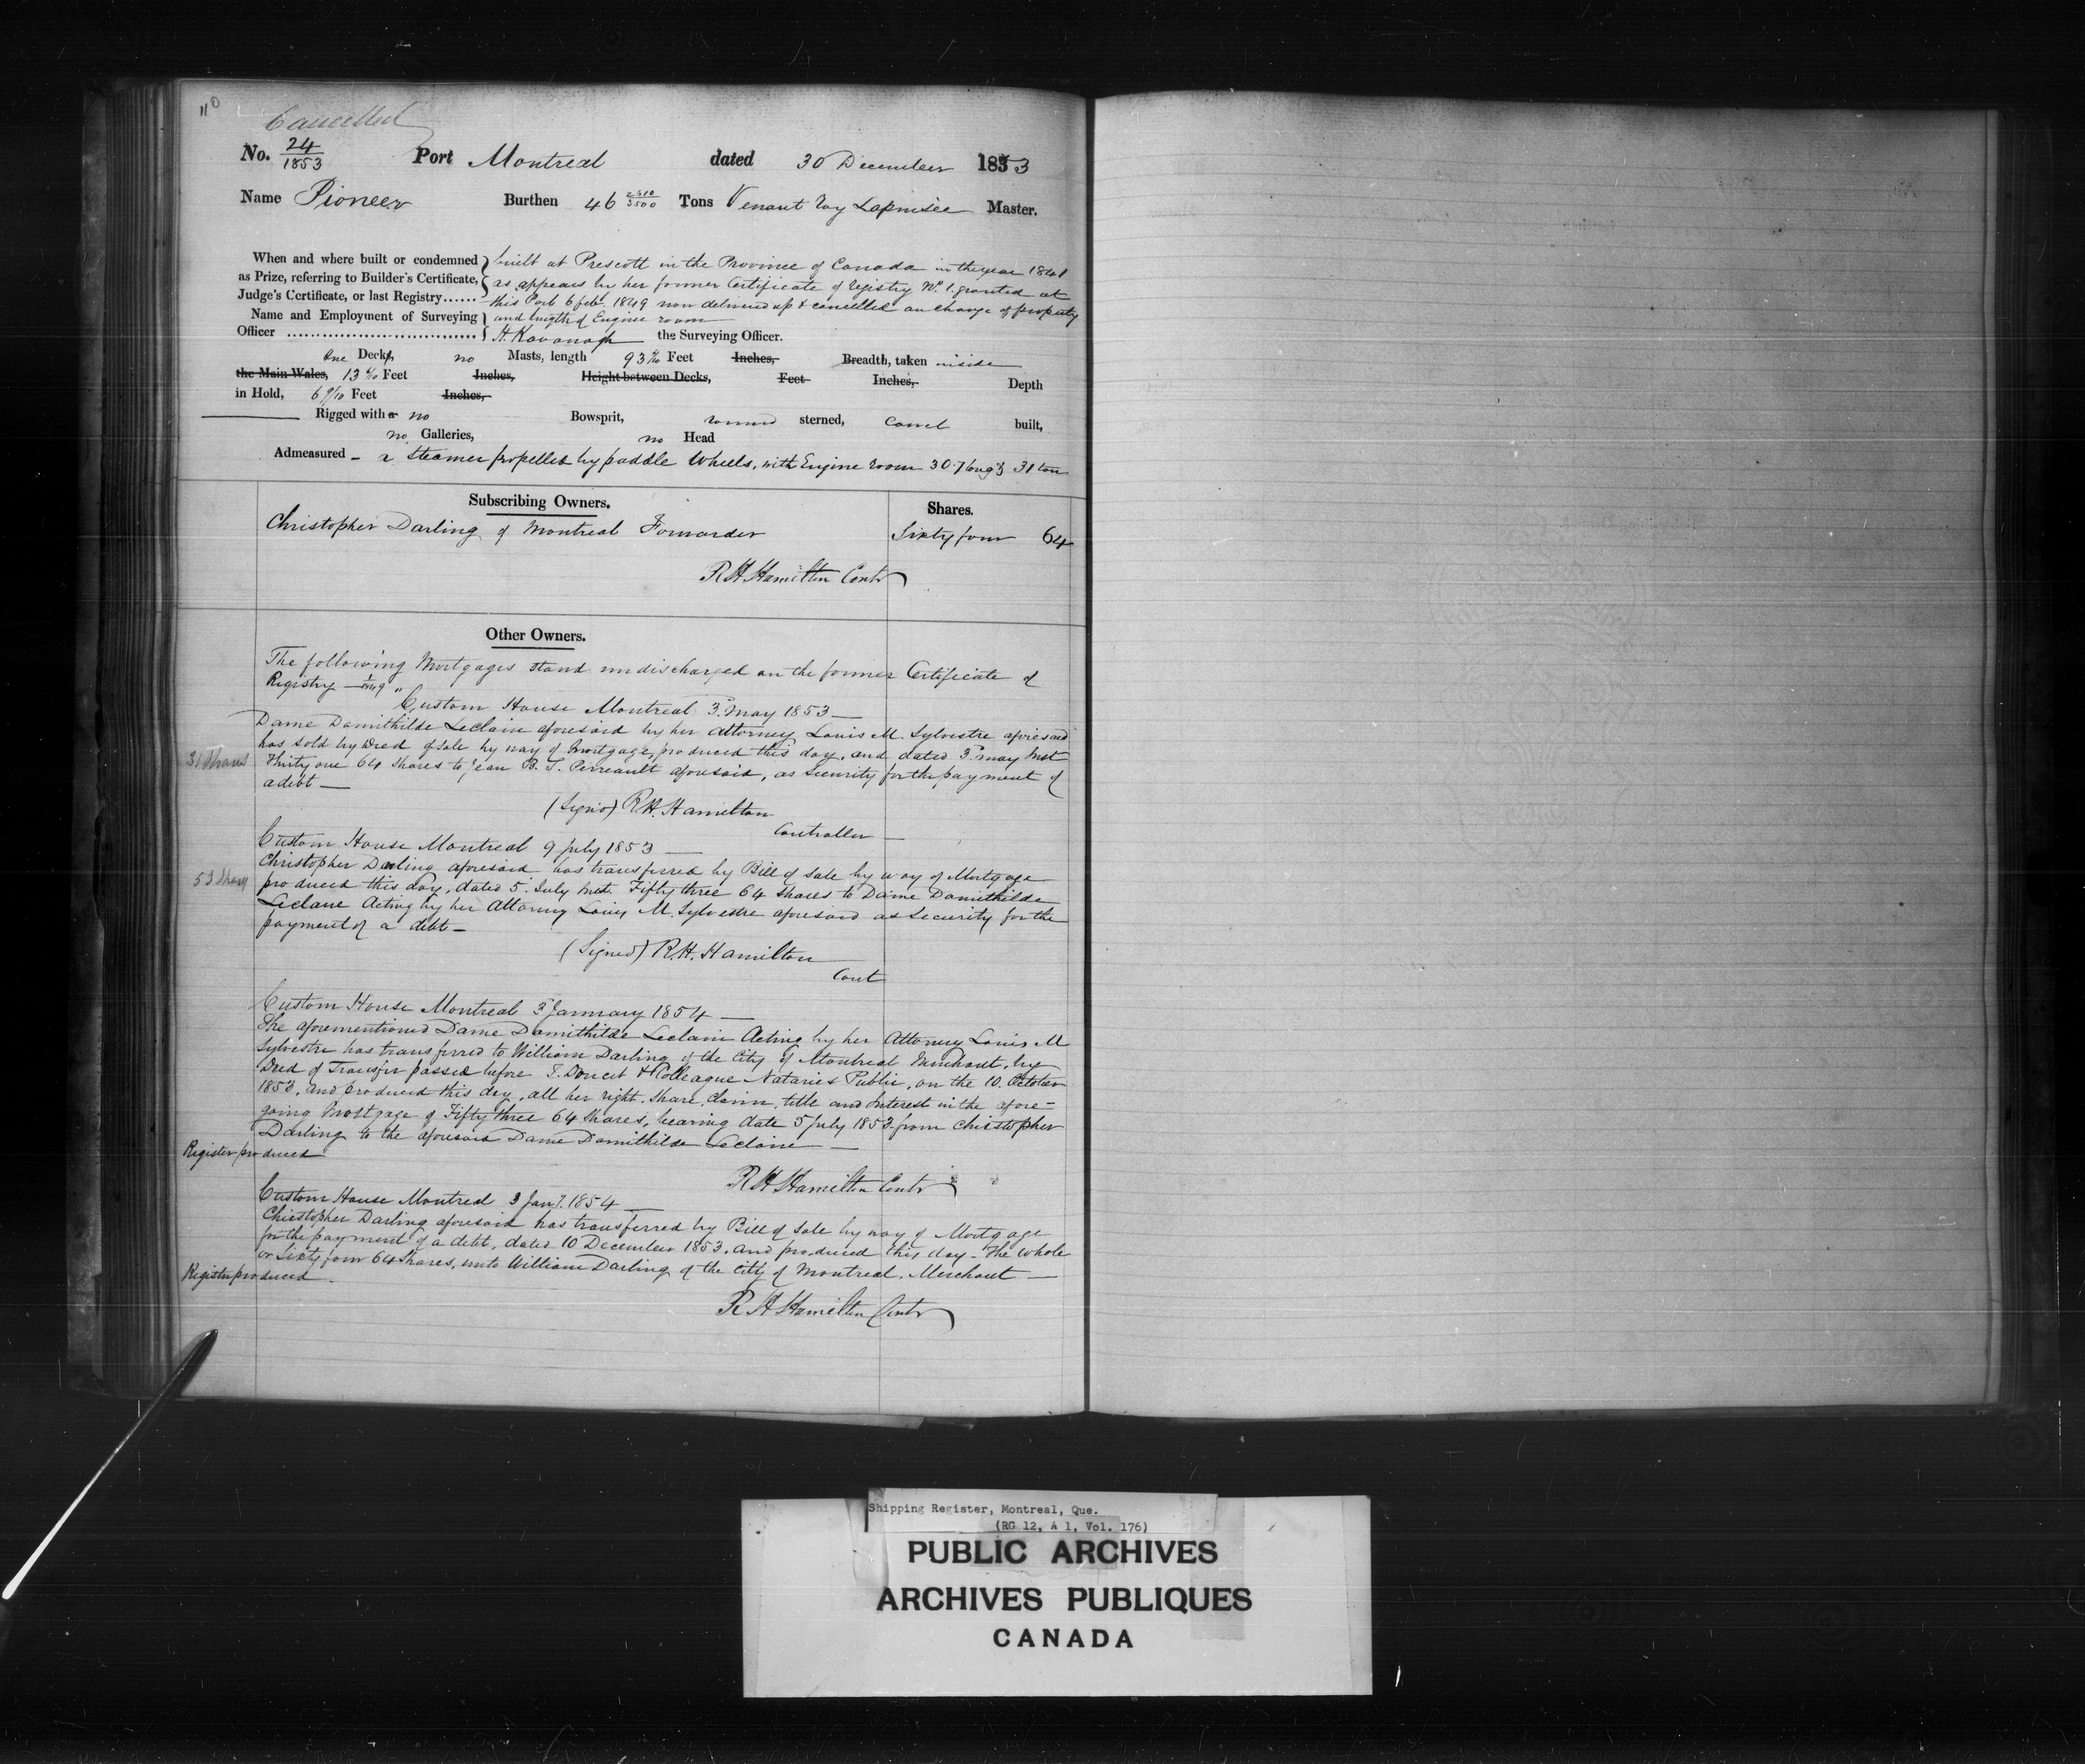 110
Cancelled
No. 24/1853 Port Montreal dated 30 December 1853
Name Pioneer Burthen 46 2310/3500 Tons Venant Roy Lapensée Master.
When and where built or condemned built at Prescott in the Province of Canada in the year 1841
as Prize, referring to Builder's Certificate, as appears by her former Certificate of Registry No. 1. granted at
Judge's Certificate, or last Registry...... this Port 6 feby. 1849 now delivered up & cancelled on change of property
Name and Employment of Surveying and length of Engine room
Officer .............................. H. Kavanagh the Surveying Officer.
One Deck, no Masts, length 93 Feet Inches, Breadth, taken inside
the Main Wales, 13 Feet Inches, Height between Decks, Feet Inches, Depth
in Hold, 6 9/10 Feet Inches,
Rigged with a no Bowsprit, round sterned, carvel built,
no Galleries, no Head
Admeasured - a Steamer propelled by paddle Wheels, with Engine room 30.7 long & 31 ton
Subscribing Owners. Shares.
Christopher Darling of Montreal Forwarder Sixty four 64
R H Hamilton Contr
Other Owners.
The following Mortgages stand undischarged on the former Certificate of
Registry 1/1849 "
Custom House Montreal 3d. May 1853 —
Dame Domithilde Leclaire aforesaid by her Attorney Louis M. Sylvestre aforesaid
has sold by Deed of Sale by way of Mortgage, produced this day, and dated 3d. may Inst
31 Shares Thirty one 64 Shares to Jean B. S. Perreault aforesaid, as Security for the payment of
a debt —
(Signed) R.H. Hamilton
Controller —
Custom House Montreal 9 July 1853 —
Christopher Darling aforesaid has transferred by Bill of Sale by way of Mortgage
53 Shares produced this day, dated 5. July Inst. Fifty three 64 Shares to Dame Domithilde
Leclaire Acting by her Attorney Louis M. Sylvestre aforesaid as Security for the
payment of a debt —
(Signed) R.H. Hamilton
Cont
Custom House Montreal 3d January 1854 —
The aforementioned Dame Domithilde Leclaire Acting by her Attorney Louis M
Sylvestre has transferred to William Darling of the City of Montreal Merchant, by
Deed of Transfer passed before T. Doucet & Colleague Notaries Public, on the 10. October
1853, and produced this day, all her right, share, claim, title and interest in the afore=
going Mortgage of Fifty three 64 Shares, bearing date 5 July 1853 from Christopher
Darling to the aforesaid Dame Domithilde Leclaire —
Register produced
R H Hamilton Contr
Custom House Montreal 3 Jany. 1854 —
Christopher Darling aforesaid has transferred by Bill of Sale by way of Mortgage
for the payment of a debt, dated 10 December 1853, and produced this day - the whole
or Sixty four 64 Shares, unto William Darling of the City of Montreal, Merchant —
Register produced
R H Hamilton Contr
Shipping Register, Montreal, Que.
(RG 12, A 1, Vol. 176)
PUBLIC ARCHIVES
ARCHIVES PUBLIQUES
CANADA